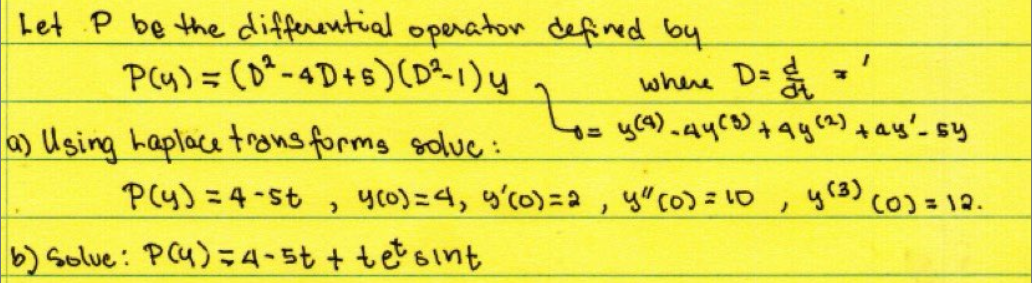 Let P be the differential operator defined by
P(y) = (D² - 4D + 5)(D² - 1)y where D = d/dt = '
= y⁽⁴⁾ - 4y⁽³⁾ + 4y⁽²⁾ + 4y' - 5y
a) Using Laplace transforms solve:
P(y) = 4 - 5t , y(0) = 4, y'(0) = 2 , y''(0) = 10 , y⁽³⁾(0) = 12.
b) Solve: P(y) = 4 - 5t + te^t sint